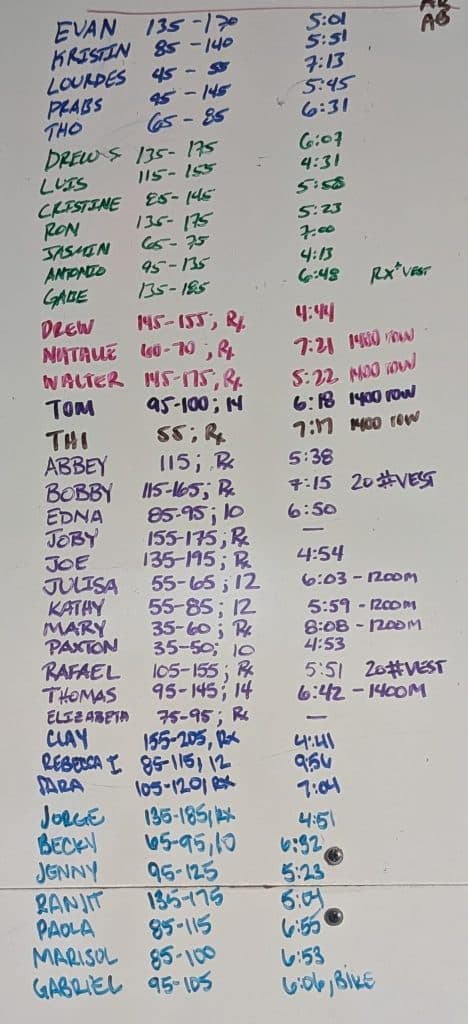 AB
EVAN 135-170 5:01 AB
KRISTIN 85-140 5:51
LOURDES 45-55 7:13
PRABS 95-145 5:45
THO 65-85 6:31
DREW S 135-175 6:07
LUIS 115-155 4:31
CRISTINE 85-145 5:58
RON 135-175 5:23
JASMIN 65-75 7:00
ANTONIO 95-135 4:13
GABE 135-185 6:48 RX+VEST
DREW 145-155, Rx 4:44
NATALIE 60-70, Rx 7:21 1400 ROW
WALTER 145-175, Rx 5:22 1400 ROW
TOM 95-100; 14 6:18 1400 ROW
THI 55; Rx 7:17 1400 ROW
ABBEY 115; Rx 5:38
BOBBY 115-165; Rx 7:15 20#VEST
EDNA 85-95; 10 6:50
JOBY 155-175; Rx —
JOE 135-195; Rx 4:54
JULISA 55-65; 12 6:03 - 1200M
KATHY 55-85; 12 5:59 - 1200M
MARY 35-60; Rx 8:08 - 1200M
PAXTON 35-50; 10 4:53
RAFAEL 105-155; Rx 5:51 20#VEST
THOMAS 95-145; 14 6:42 - 1400M
ELIZABETH 75-95; Rx —
CLAY 155-205, Rx 4:41
REBECCA I. 85-115, 12 9:56
SARA 105-120, Rx 7:04
JORGE 135-185, Rx 4:51
BECKY 65-95, 10 6:32
JENNY 95-125 5:23
RANJIT 135-175 5:04
PAOLA 85-115 6:55
MARISOL 85-100 6:53
GABRIEL 95-105 6:06, BIKE